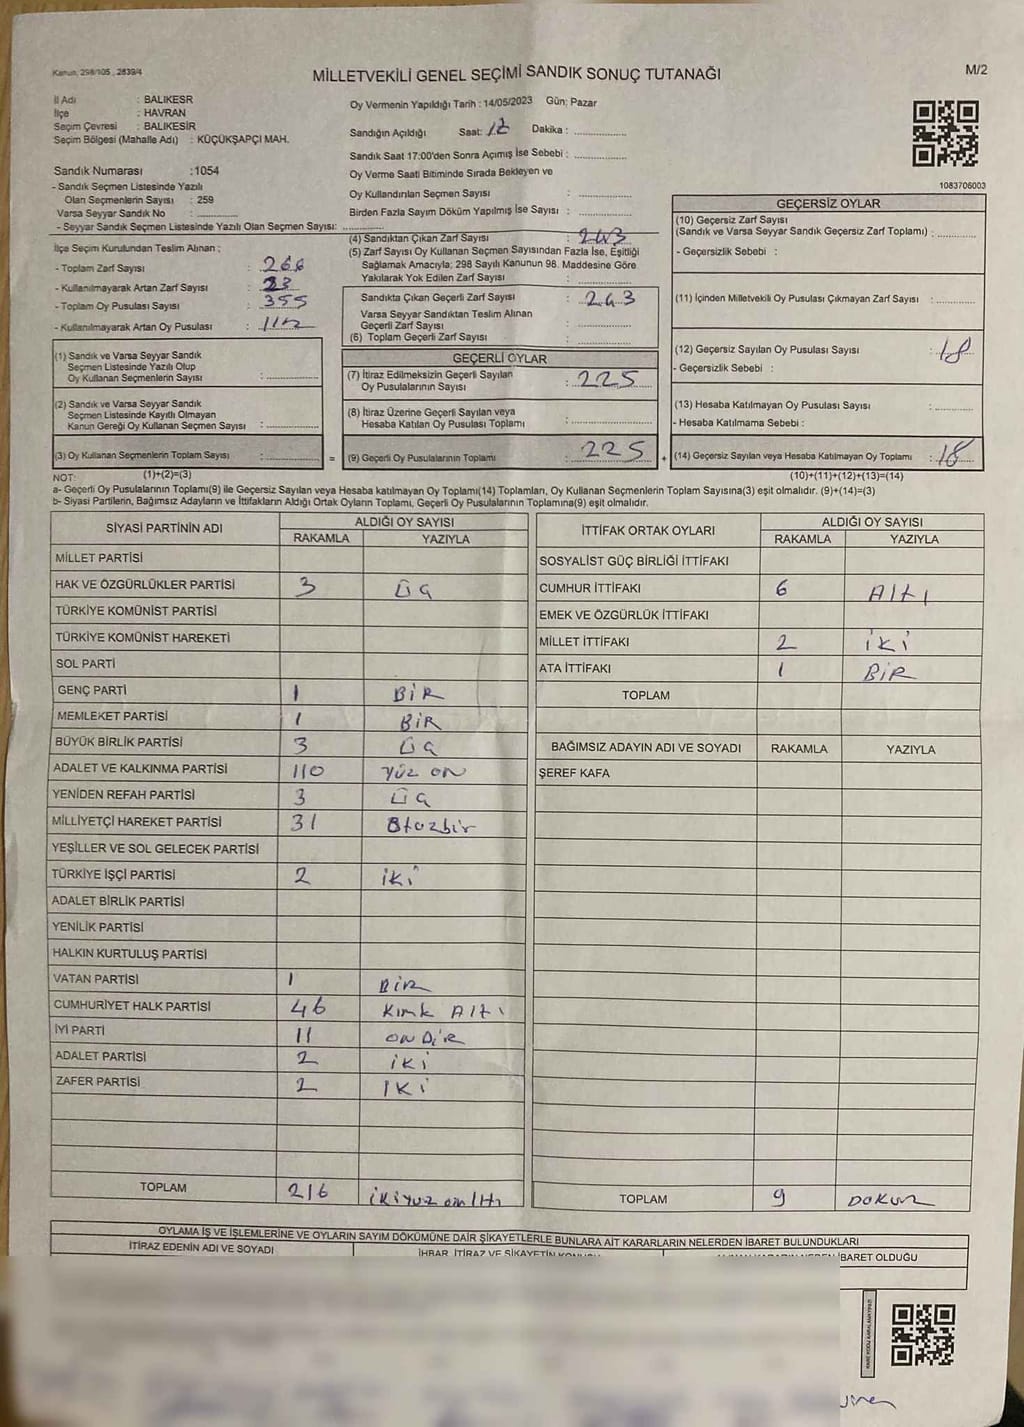 Kanun, 298/105 , 2839/4
MİLLETVEKİLİ GENEL SEÇİMİ SANDIK SONUÇ TUTANAĞI
M/2
İl Adı : BALIKESR
İlçe : HAVRAN
Seçim Çevresi : BALIKESİR
Seçim Bölgesi (Mahalle Adı) : KÜÇÜKŞAPÇI MAH.
Sandık Numarası :1054
- Sandık Seçmen Listesinde Yazılı
Olan Seçmenlerin Sayısı : 259
Varsa Seyyar Sandık No : ..............
- Seyyar Sandık Seçmen Listesinde Yazılı Olan Seçmen Sayısı: ..............
İlçe Seçim Kurulundan Teslim Alınan ;
- Toplam Zarf Sayısı : 266
- Kullanılmayarak Artan Zarf Sayısı : 23
- Toplam Oy Pusulası Sayısı : 355
- Kullanılmayarak Artan Oy Pusulası :
(1) Sandık ve Varsa Seyyar Sandık
Seçmen Listesinde Yazılı Olup
Oy Kullanan Seçmenlerin Sayısı : ..............
(2) Sandık ve Varsa Seyyar Sandık
Seçmen Listesinde Kayıtlı Olmayan
Kanun Gereği Oy Kullanan Seçmen Sayısı : ..............
(3) Oy Kullanan Seçmenlerin Toplam Sayısı : ..............
Oy Vermenin Yapıldığı Tarih : 14/05/2023 Gün: Pazar
Sandığın Açıldığı Saat: Dakika : ..............
Sandık Saat 17:00'den Sonra Açımış İse Sebebi : ..............
Oy Verme Saati Bitiminde Sırada Bekleyen ve
Oy Kullandırılan Seçmen Sayısı : ..............
Birden Fazla Sayım Döküm Yapılmış İse Sayısı : ..............
(4) Sandıktan Çıkan Zarf Sayısı : 243
(5) Zarf Sayısı Oy Kullanan Seçmen Sayısından Fazla İse, Eşitliği
Sağlamak Amacıyla; 298 Sayılı Kanunun 98. Maddesine Göre
Yakılarak Yok Edilen Zarf Sayısı : ..............
Sandıkta Çıkan Geçerli Zarf Sayısı : 243
Varsa Seyyar Sandıktan Teslim Alınan
Geçerli Zarf Sayısı : ..............
(6) Toplam Geçerli Zarf Sayısı : ..............
GEÇERLİ OYLAR
(7) İtiraz Edilmeksizin Geçerli Sayılan
Oy Pusulalarının Sayısı : 225
(8) İtiraz Üzerine Geçerli Sayılan veya
Hesaba Katılan Oy Pusulası Toplamı : ..............
= (9) Geçerli Oy Pusulalarının Toplamı : 225
1083706003
GEÇERSİZ OYLAR
(10) Geçersiz Zarf Sayısı
(Sandık ve Varsa Seyyar Sandık Geçersiz Zarf Toplamı) : ..............
- Geçersizlik Sebebi :
(11) İçinden Milletvekili Oy Pusulası Çıkmayan Zarf Sayısı : ..............
(12) Geçersiz Sayılan Oy Pusulası Sayısı : 18
- Geçersizlik Sebebi :
(13) Hesaba Katılmayan Oy Pusulası Sayısı : ..............
- Hesaba Katılmama Sebebi :
+ (14) Geçersiz Sayılan veya Hesaba Katılmayan Oy Toplamı : 18
NOT: (1)+(2)=(3) (10)+(11)+(12)+(13)=(14)
a- Geçerli Oy Pusulalarının Toplamı(9) ile Geçersiz Sayılan veya Hesaba katılmayan Oy Toplamı(14) Toplamları, Oy Kullanan Seçmenlerin Toplam Sayısına(3) eşit olmalıdır. (9)+(14)=(3)
b- Siyasi Partilerin, Bağımsız Adayların ve İttifakların Aldığı Ortak Oyların Toplamı, Geçerli Oy Pusulalarının Toplamına(9) eşit olmalıdır.
SİYASİ PARTİNİN ADI ALDIĞI OY SAYISI
RAKAMLA YAZIYLA
MİLLET PARTİSİ
HAK VE ÖZGÜRLÜKLER PARTİSİ 3 ÜÇ
TÜRKİYE KOMÜNİST PARTİSİ
TÜRKİYE KOMÜNİST HAREKETİ
SOL PARTİ
GENÇ PARTİ 1 BİR
MEMLEKET PARTİSİ 1 BİR
BÜYÜK BİRLİK PARTİSİ 3 ÜÇ
ADALET VE KALKINMA PARTİSİ 110 YÜZ ON
YENİDEN REFAH PARTİSİ 3 ÜÇ
MİLLİYETÇİ HAREKET PARTİSİ 31 Otuzbir
YEŞİLLER VE SOL GELECEK PARTİSİ
TÜRKİYE İŞÇİ PARTİSİ 2 İKİ
ADALET BİRLİK PARTİSİ
YENİLİK PARTİSİ
HALKIN KURTULUŞ PARTİSİ
VATAN PARTİSİ 1 BİR
CUMHURİYET HALK PARTİSİ 46 Kırk Altı
İYİ PARTİ 11 ON BİR
ADALET PARTİSİ 2 İKİ
ZAFER PARTİSİ 2 İKİ
TOPLAM 216 İKİYÜZ onaltı
İTTİFAK ORTAK OYLARI ALDIĞI OY SAYISI
RAKAMLA YAZIYLA
SOSYALİST GÜÇ BİRLİĞİ İTTİFAKI
CUMHUR İTTİFAKI 6 Altı
EMEK VE ÖZGÜRLÜK İTTİFAKI
MİLLET İTTİFAKI 2 İKİ
ATA İTTİFAKI 1 BİR
TOPLAM
BAĞIMSIZ ADAYIN ADI VE SOYADI RAKAMLA YAZIYLA
ŞEREF KAFA
TOPLAM 9 DOKUZ
OYLAMA İŞ VE İŞLEMLERİNE VE OYLARIN SAYIM DÖKÜMÜNE DAİR ŞİKAYETLERLE BUNLARA AİT KARARLARIN NELERDEN İBARET BULUNDUKLARI
İTİRAZ EDENİN ADI VE SOYADI İHBAR, İTİRAZ VE ŞİKAYETİN İBARET OLDUĞU